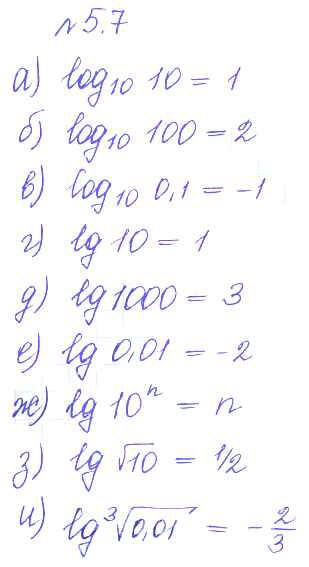 №5.7
а) log₁₀ 10 = 1
б) log₁₀ 100 = 2
в) log₁₀ 0,1 = -1
г) lg 10 = 1
д) lg 1000 = 3
е) lg 0,01 = -2
ж) lg 10ⁿ = n
з) lg √10 = 1/2
и) lg ³√0,01 = -2/3